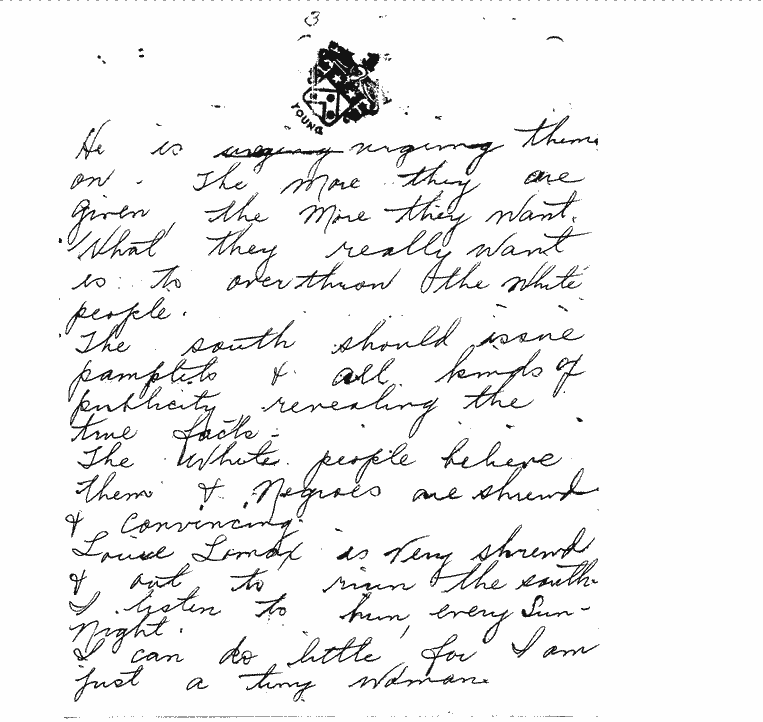 3
YOUNG
He is urging urging them
on. The more they are
given the more they want.
What they really want
is to overthrow the white
people.
The south should issue
pamplets & all kinds of
publicity revealing the
true facts.
The White people believe
them & Negroes are shrewd
& convincing.
Louise Lomax is very shrewd
& out to ruin the south.
I listen to him every Sun-
Night.
I can do little, for I am
just a tiny woman.